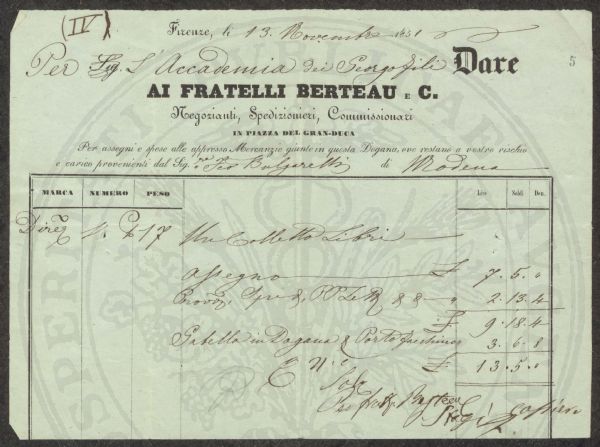 (IV)
Firenze, li 13. Novembre 1851
5
Per Sig. L'Accademia dei Georgofili Dare
AI FRATELLI BERTEAU E C.
Negozianti, Spedizionieri, Commissionari
IN PIAZZA DEL GRAN-DUCA
Per assegni e spese alle appresso Mercanzie giunte in questa Dogana, ove restano a vostro rischio
e carico provenienti dal Sig. Pio Bulgarelli di Modena
MARCA NUMERO PESO Lire Soldi Den.
17 Un Colletto Libri
Assegno £ 7. 5. "
" 2. 13. 4
£ 9. 18. 4
Gabella in Dogana & Porto facchino 3. 6. 8
£ 13. 5. 0